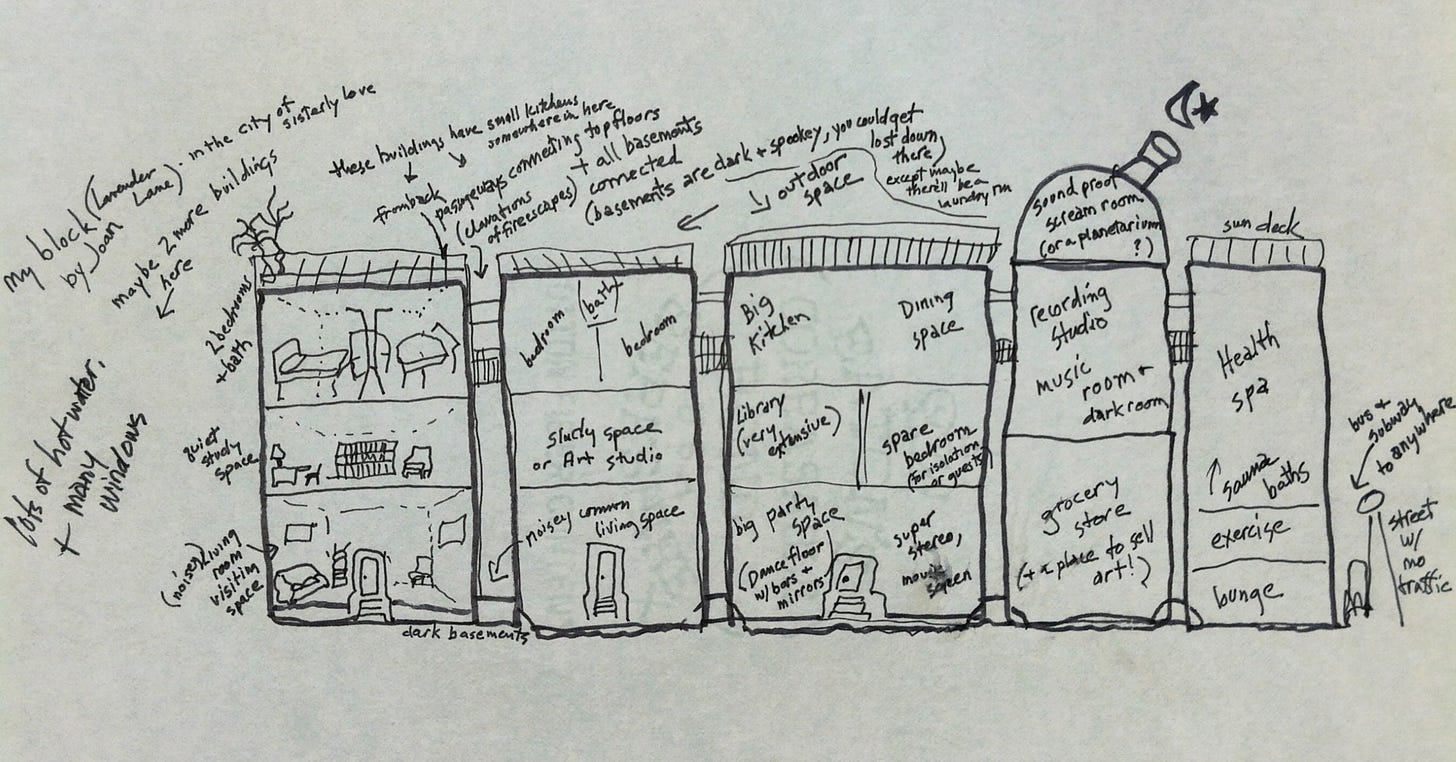 My block (Lavender
Lane) - in the city of
sisterly love
by Joan
maybe 2 more buildings
here
lots of hot water,
+ many
windows
these buildings have small kitchens
somewhere in here
from back
passageways connecting top floors
(elevations
of firescapes)
+ all basements
connected
(basements are dark + spookey, you could get
lost down
there,
except maybe
there'll be a
laundry rm
outdoor
space
2 bedrooms
+ bath
quiet
study
space
(noisey) living
room
visiting
space
dark basements
bedroom
bath
bedroom
study space
or Art studio
noisey common
living space
Big
Kitchen
Dining
space
Library
(very
extensive)
spare
bedroom
(for isolation
or guests)
big party
space
(Dance floor
w/bars +
mirrors)
super
stereo,
movie
screen
sound proof
scream room
(or a planetarium
?)
recording
studio
music
room +
darkroom
grocery
store
(+ a place to sell
art!)
sun deck
Health
spa
sauna
baths
exercise
bunge
bus +
subway
to anywhere
street
w/
no
traffic